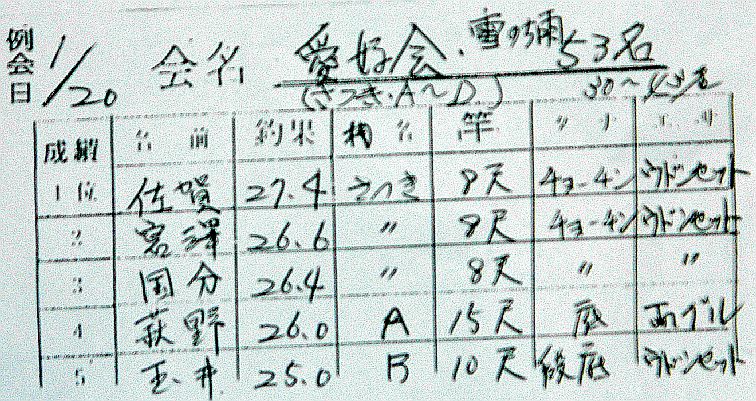 例会日 1/20 会名 愛好会・雪のち雨 53名
(さつき・A～D) 30～43名
成績 名前 釣果 桟名 竿
1位 佐賀 27.4 さつき 8尺 チョーチン ウドンセット
2 宮澤 26.6 〃 8尺 チョーチン ウドンセット
3 国分 26.4 〃 8尺 〃 〃
4 萩野 26.0 A 15尺 底 両グル
5 玉井 25.0 B 10尺 段底 ウドンセット